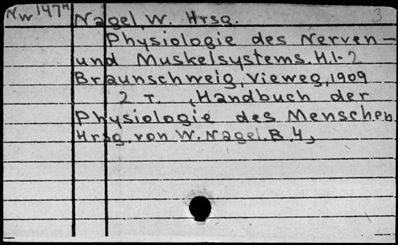 Nw 1474 Nagel, W. Hrsg. 3
Physiologie des Nerven-
und Muskelsystems. H.1-2
Braunschweig, Vieweg, 1909
2 T. (Handbuch der
Physiologie des Menschen
Hrsg. von W. Nagel. B. 4)